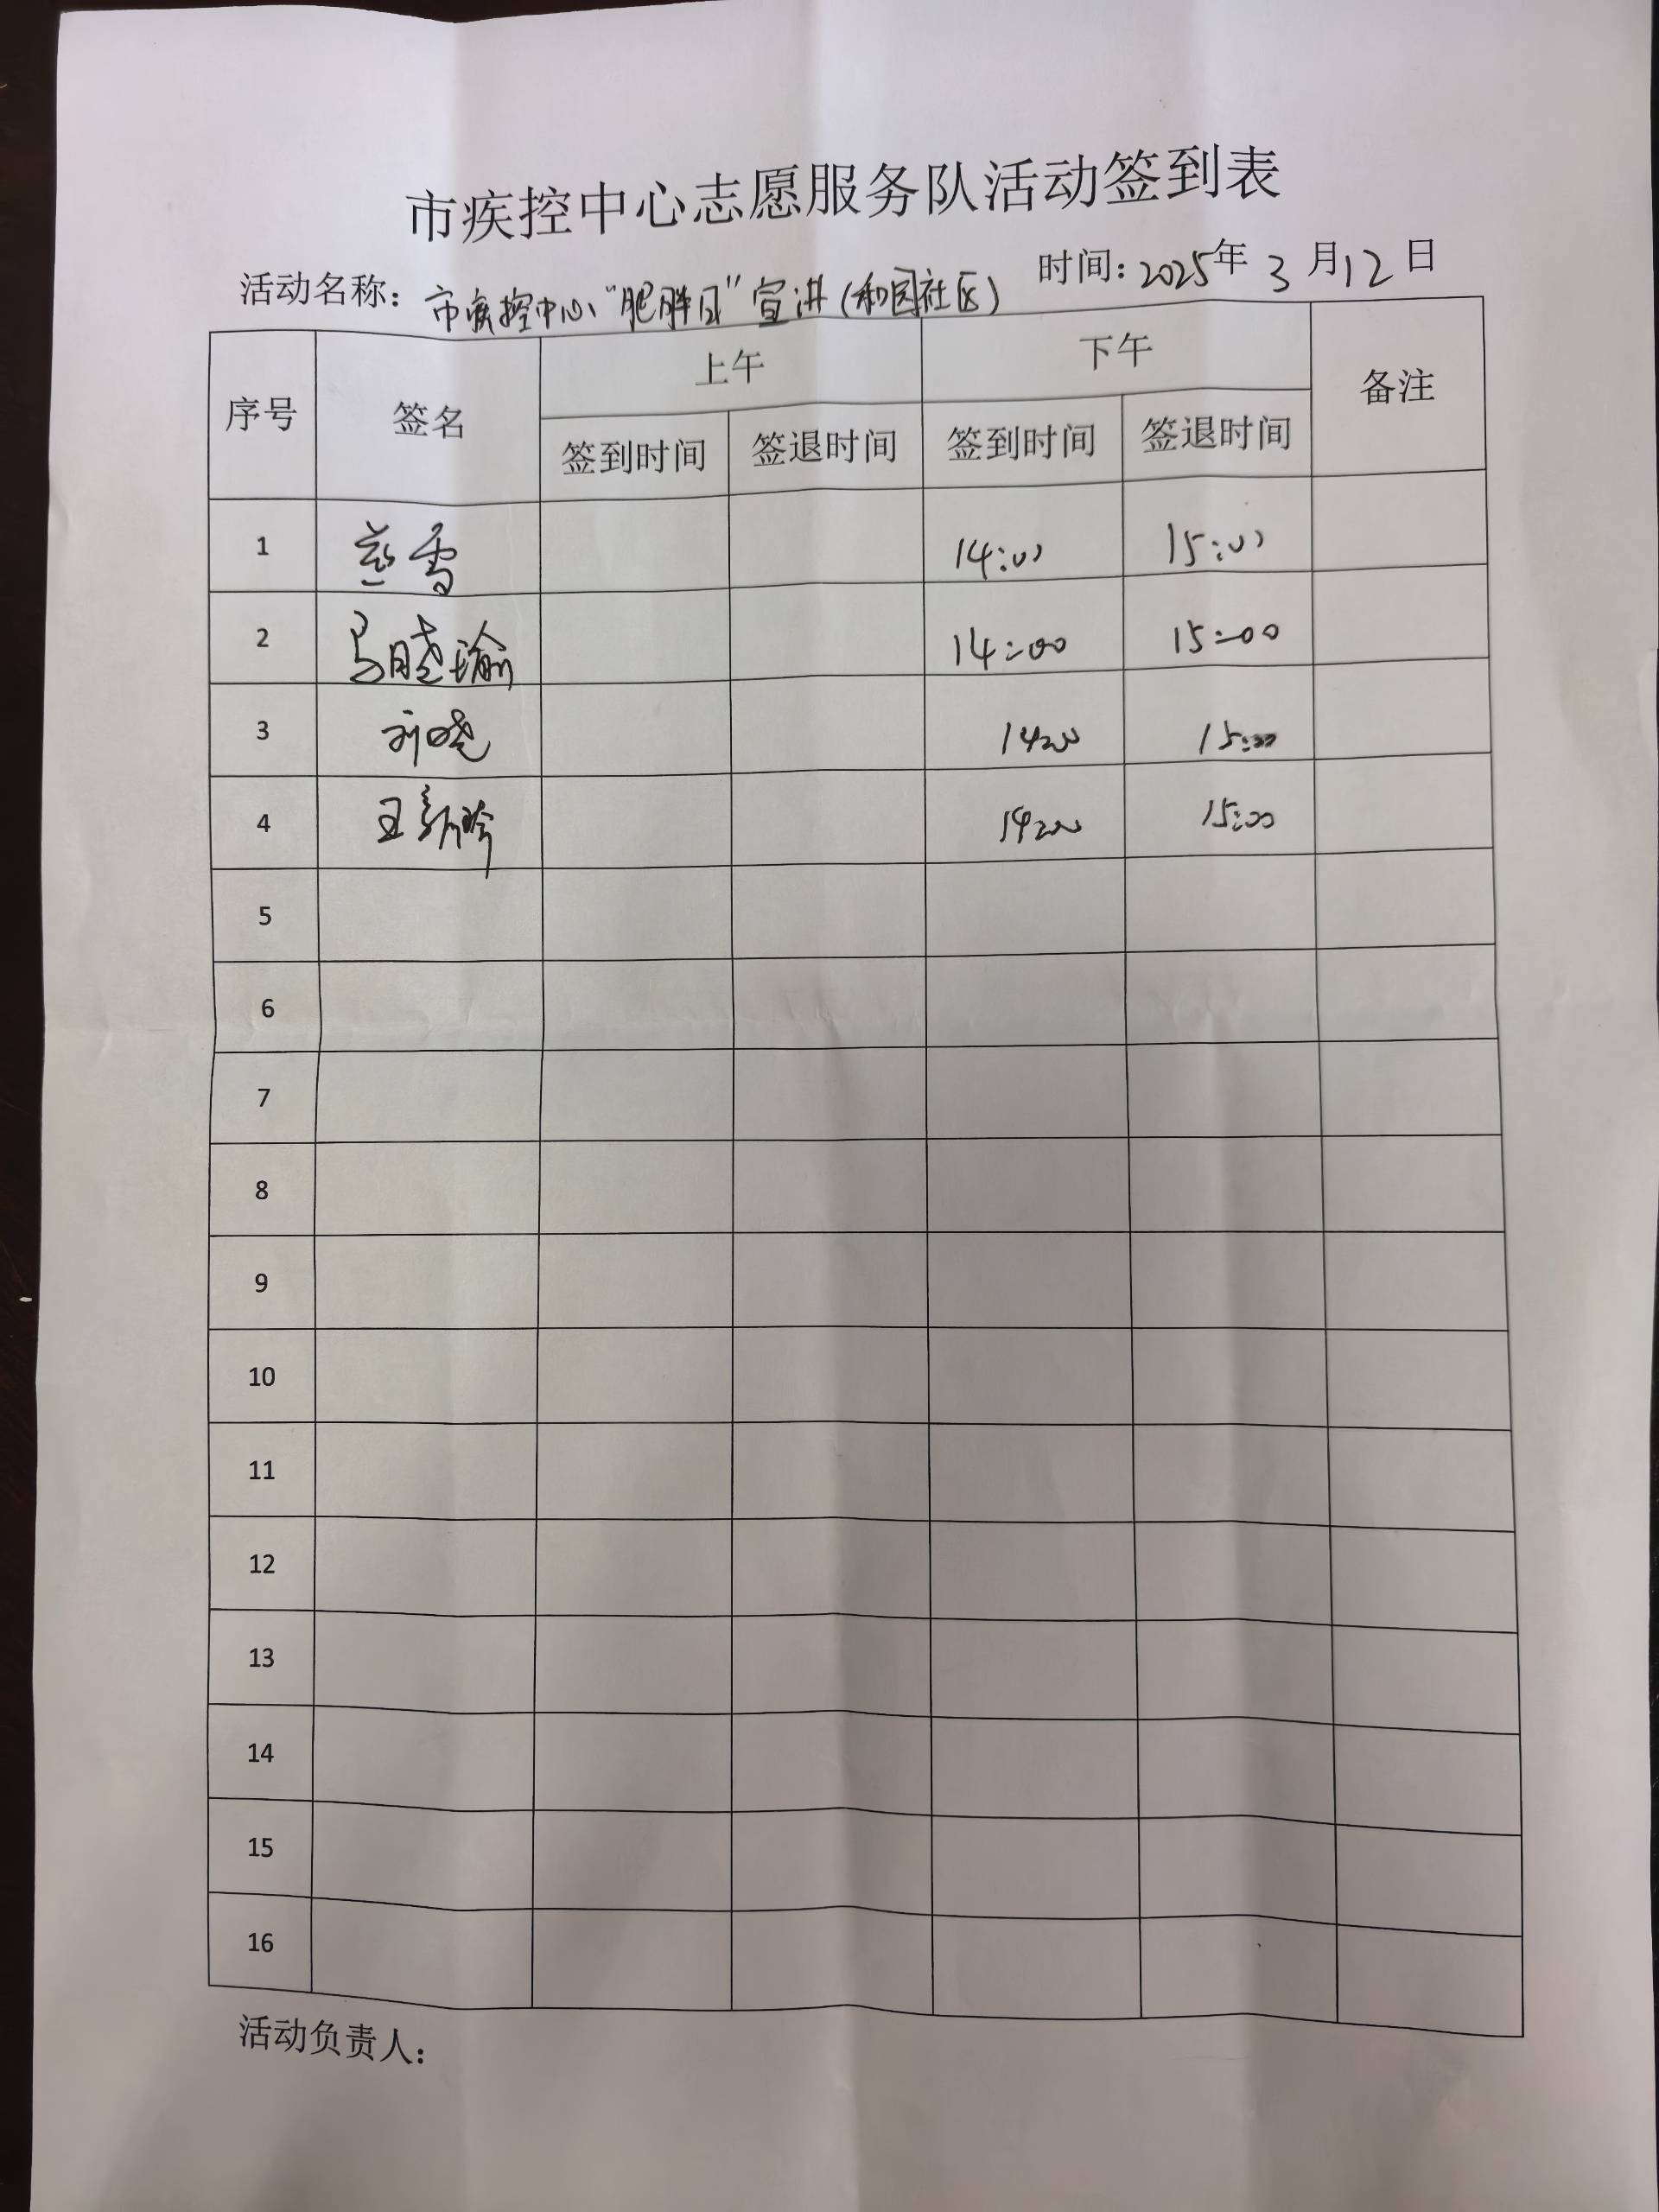 市疾控中心志愿服务队活动签到表
活动名称：市疾控中心“肥胖日”宣讲（和园社区） 时间：2025年3月12日
序号 签名 上午 下午 备注
签到时间 签退时间 签到时间 签退时间
1 雪 14:00 15:00
2 马晓瑜 14:00 15:00
3 刘晓 14:00 15:00
4 王 14:00 15:00
5
6
7
8
9
10
11
12
13
14
15
16
活动负责人：